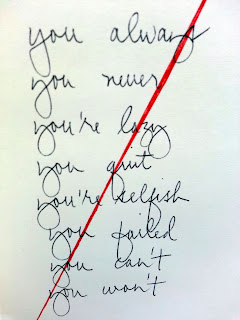 you always
you never
you're lazy
you quit
you're selfish
you failed
you can't
you won't